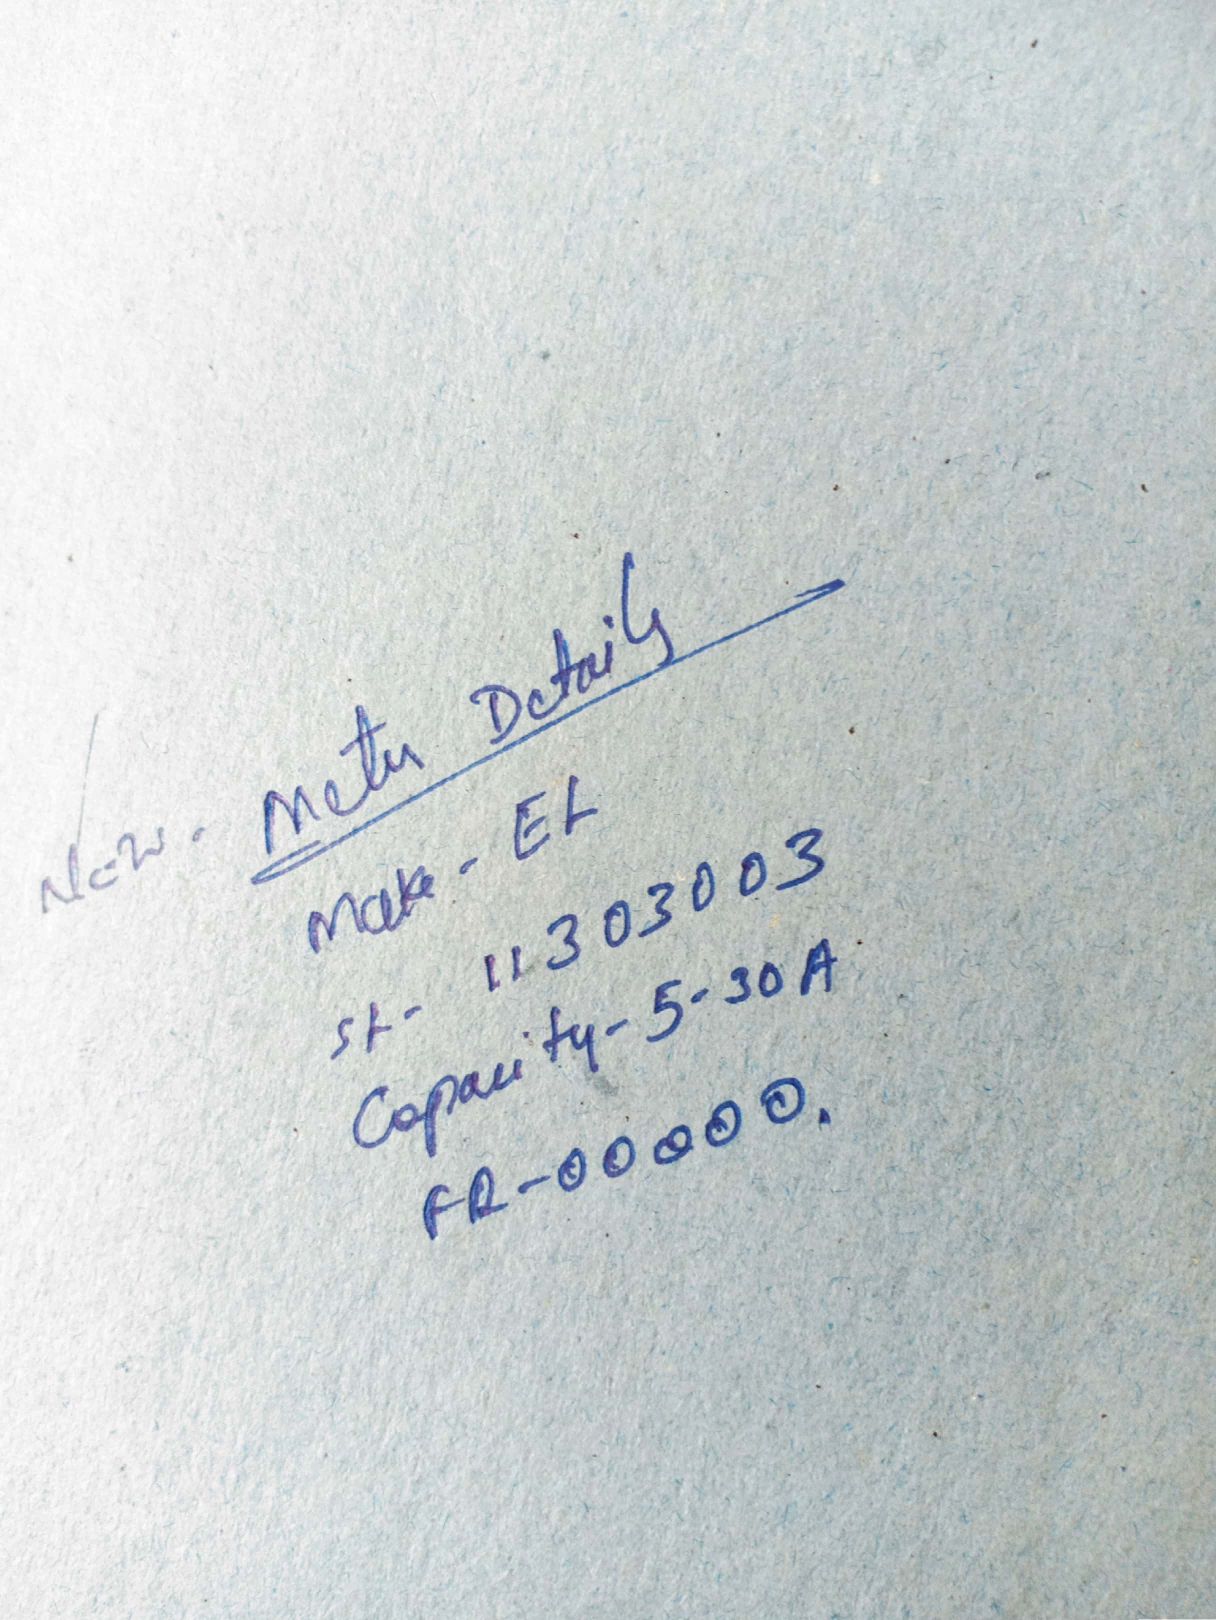 New. Meter Details
Make - EL
SL- 11303003
Capacity - 5-30A
FR-00000.